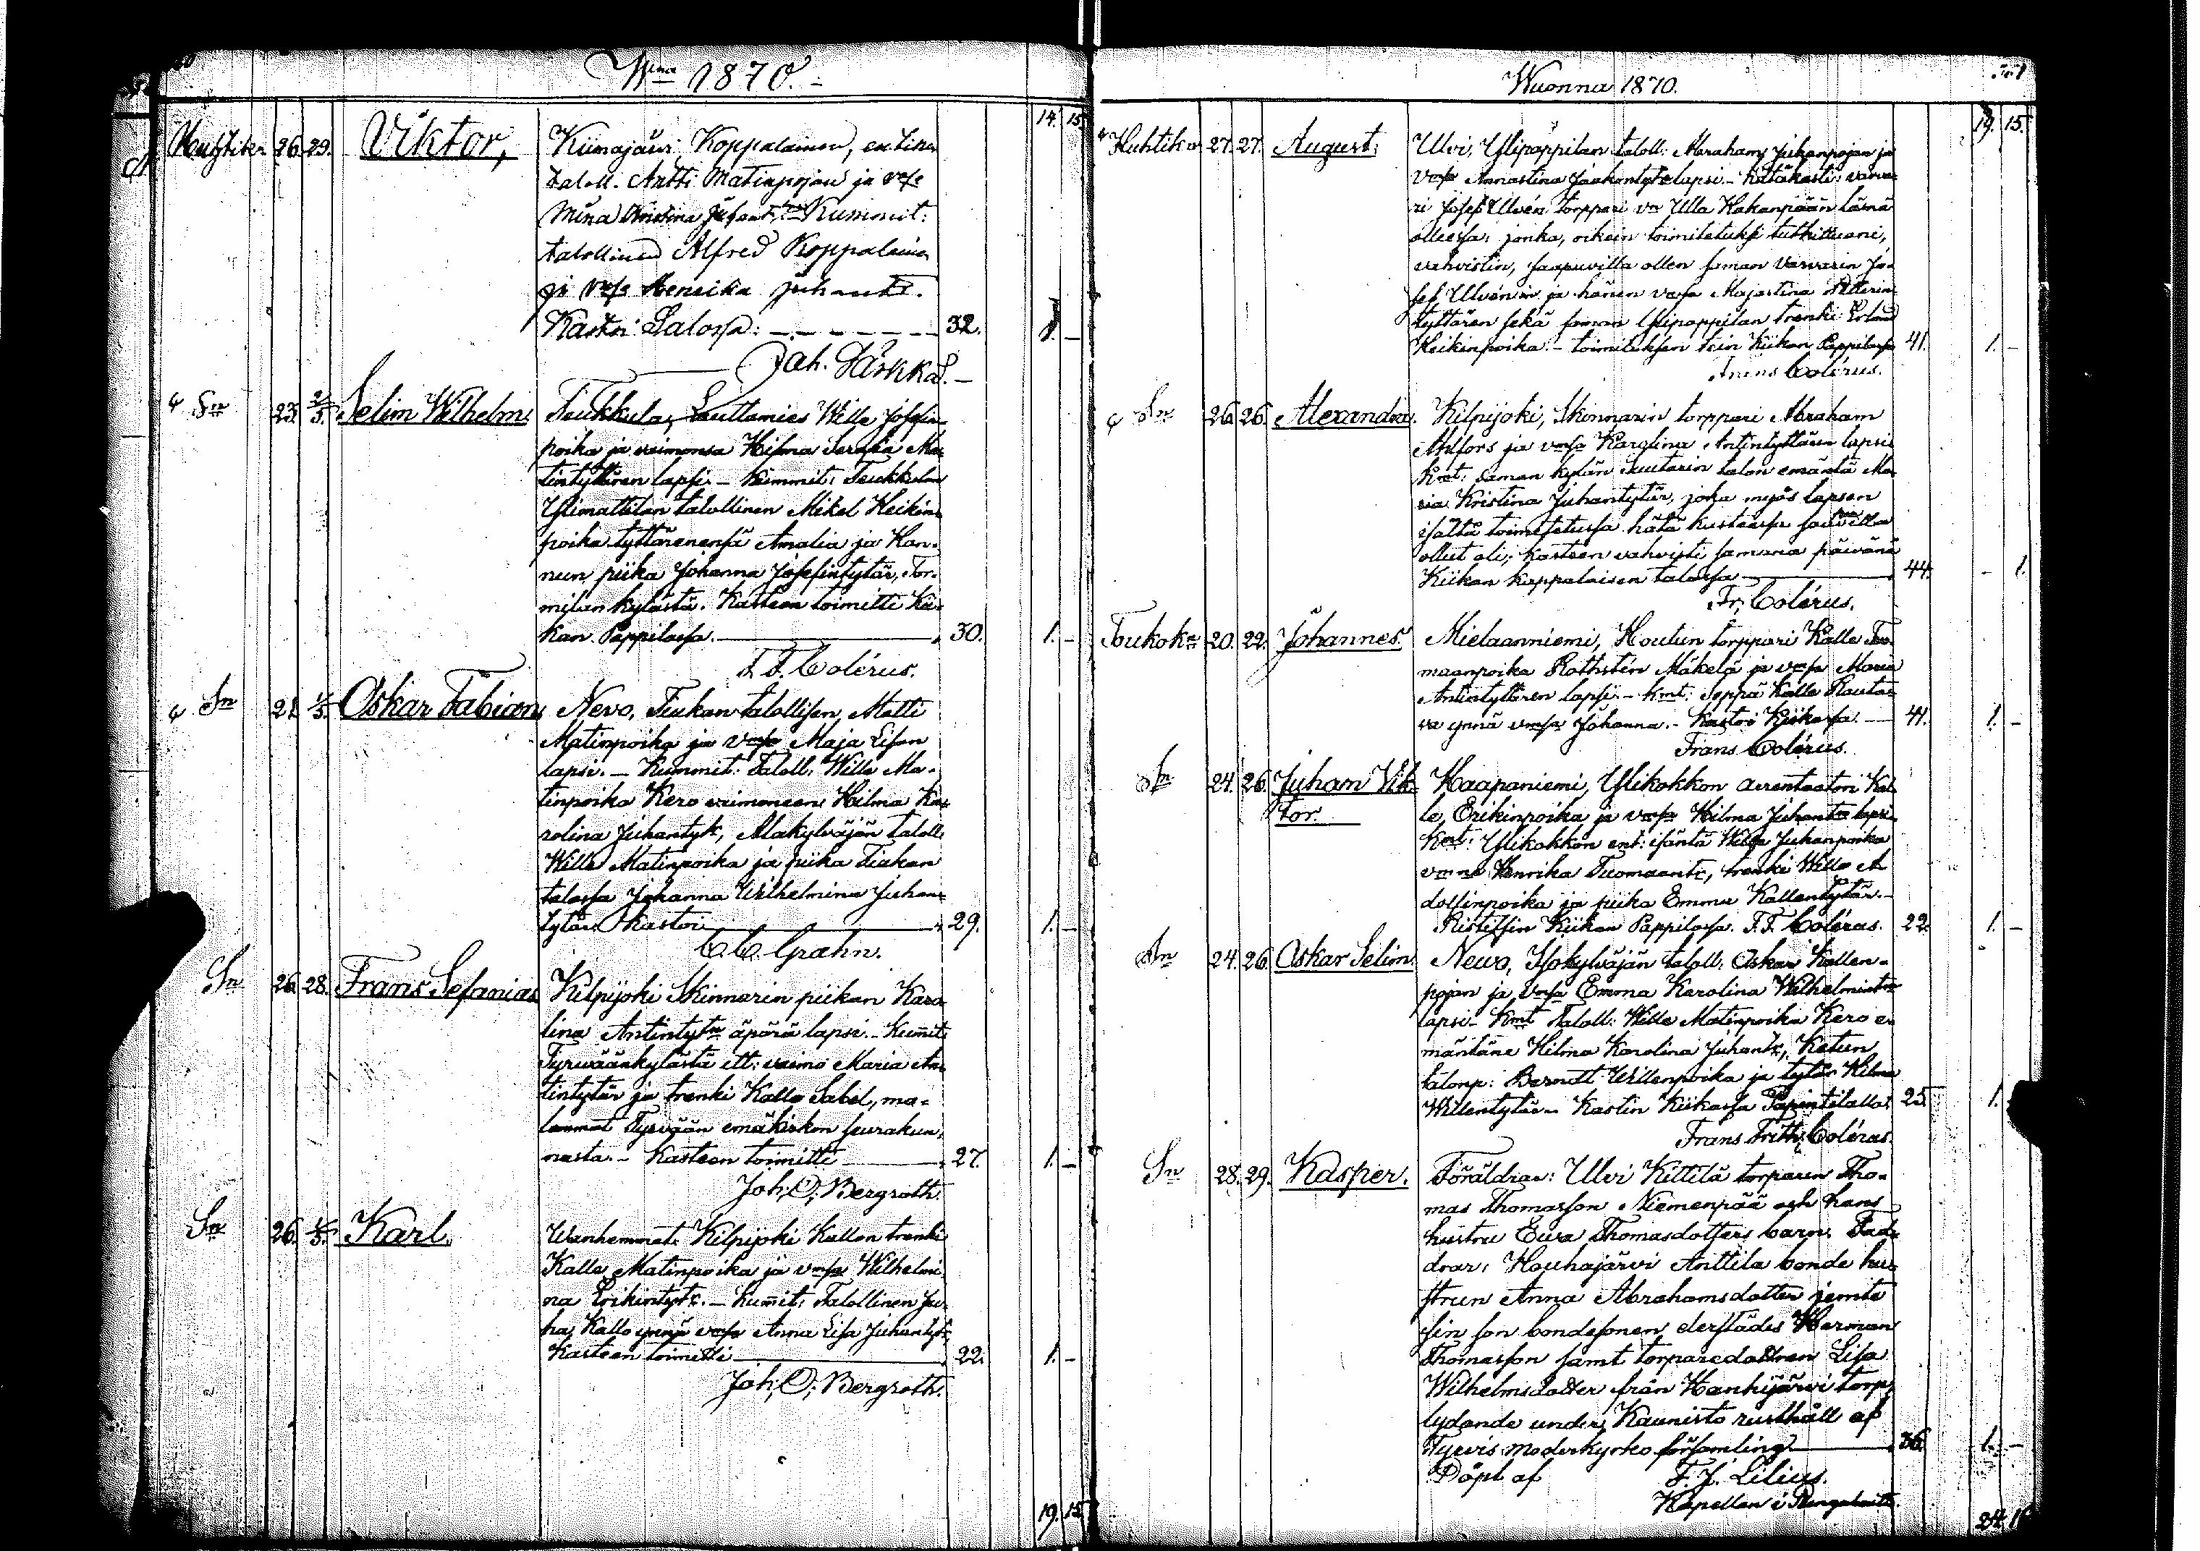 Wna 1870.
14. 15.
Huhtika 26. 29. Viktor, Kiimajärvi Koppalainen, entinen
taloll. Antti Matinpojan ja vmse
Mina Kristina Juhant. Kummit:
talollinen Alfred Koppalainen
ja vmse Henrika Juhantr.
Kastoi Salossa: 32. 1. –
Joh. Särkkä.
Sn 23. 2/5 Selim Wilhelm. Teukkula, Lauttamies Wille Josefin
poika ja vaimonsa Hilma Serafia Ma-
tintyttären lapsi. – Kummit: Teukkulan
Ylimattilan talollinen Mikel Heikin-
poika tyttärenensä Amalia ja Han-
nun piika Johanna Josefintytär, Tor-
milan kylästä. Kasteen toimitti Kii-
kan Pappilassa. 30. 1. –
F. F. Colérus.
Sn 21. 1/5 Oskar Fabian Nevo, Tiukan talollisen, Matti
Matinpoika ja vmse Maja Lisan
lapsi. – Kummit: Taloll. Wille Ma-
tinpoika Kero vaimoneen Hilma Ka-
rolina Juhantyt, Alakylväjän taloll.
Wille Matinpoika ja piika Tiukan
talossa Johanna Wilhelmina Juhan-
tytär. Kastoi 29. 1. –
C. C. Grahn.
Sn 26. 28. Frans Sefanias Kilpijoki Skinnarin piikan Karo-
lina Antintytn äpärä lapsi. – Kummit
Tyrwäänkylästä itt: vaimo Maria An-
tintytär ja trenki Kalle Sabel, mo-
lemmat Tyrvään emäkirkon seurakun-
nasta. – Kasteen toimitti 27. 1. –
Joh; O; Bergroth.
Sn 26. 1/5 Karl. Wanhemmat: Kilpijoki Kallon trenki
Kalle Matinpoika ja vmsa Wilhelmi-
na Erikintytr. – Kummit: Talollinen Ju-
ha, Kallo ynnä vmsa Anna Lisa Juhantytr
Kasteen toimitti 22. 1. –
Joh; O; Bergroth.
19. 15.
Wuonna 1870.
19. 15.
Huhtika 27. 27. August. Ulvi, Ylipappilan taloll: Abraham Juhanpojan ja
vmsa Annastina Jaakontytr lapsi. – Hätäkasti: varva-
ri Josef Ulvén torppari vr Ulla Kakanpään läsnä
ollessa; jonka, oikein toimitetuksi tutkittuani,
vahvistin, saapuvilla ollen saman varvarin Jo-
sef Ulvénin ja hänen vmsa Majastina Petterin
tyttären sekä saman Ylipappilan trenki Erland
Heikinpoika. – toimituksen tein Kiikan Pappilassa 41. 1. –
Frans Colérus.
Sn 26. 26. Alexandra. Kilpijoki, Skinnarin torppari Abraham
Ahlfors ja vmsa Karolina Antintyttären lapsi.
Kmt: saman kylän Suutarin talon emäntä Ma-
ria Kristina Juhantytär, joka myös lapsen
isältä toimitetussa hätä kasteessa saapuvilla
ollut oli; kasteen vahvisti samana päivänä
Kiikan kappalaisen talossa 44. – 1.
Fr; Colérus.
Toukok 20. 22. Johannes. Mielaanniemi, Houtun torppari Kalle Tuo-
maanpoika Rothstén Mäkelä ja vmsa Maria
Antintyttären lapsi. – Kmt: Seppä Kalle Rauta-
va ynnä vmsa Johanna. – Kastoi Kiikassa. 41. 1. –
Frans Colérus.
Sn 24. 26. Juhan Vik- Haapaniemi, Ylikokkon arrentaatori Kal-
tor. le, Erikinpoika ja vmsa Hilma Juhantr lapsi.
Kmt: Ylikokkon ent: isäntä Wille Juhanpoika
Henrika Tuomaantr, trenki Wille A-
dolfinpoika ja piika Emma Kallentytär. –
Ristitsin Kiikan Pappilassa. F. F. Colérus. 22. 1. –
Sn 24. 26. Oskar Selim. Newo, Isokylväjän taloll: Oskar Kallen-
pojan ja vmsa Emma Karolina Wilhelmintr
lapsi. – Kmt Taloll: Wille Matinpoika Kero e-
mäntäne Hilma Karolina Juhantr, Ketun
talonp: Berndt Willenpoika ja tytär Hilma
Willentytär. – Kastin Kiikassa Papintalolla. 25. 1.
Frans Frith; Colérus.
Sn 28. 29. Kasper. Föräldrar: Ulvi Kittilä torparen Tho-
mas Thomasson Niemenpää och hans
hustru Eva Thomasdotters barn. Fad-
drar: Houhajärvi Anttila bonde hu-
strun Anna Abrahamsdotter jemte
sin son bondesonen derstädes Herman
Thomasson samt torparedottren Lisa
Wilhelmsdotter från Hanhijärvi torp
lydande under Kaunisto rusthåll af
Tyrvis moderkyrko församling 36. 1. –
Döpt af F. J. Lilius.
Kapellan i
24. 16